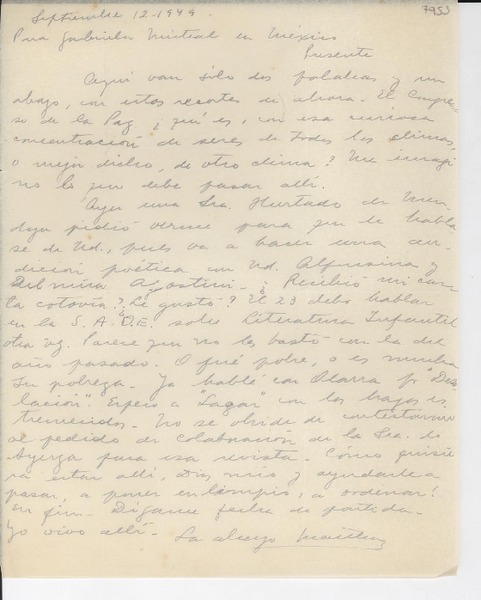 Septiembre 12-1949.
7953
Para Gabriela Mistral en México
Presente
Aquí van sólo dos palabras y un
abrazo, con estos recortes de ahora. El Congre-
so de la Paz ¿qué es, con esa curiosa
concentración de seres de todos los climas,
o mejor dicho, de otro clima? Me imagi
no lo que debe pasar allí.
Ayer una Sra. Hurtado de Men-
doza pidió verme para que le habla
se de Ud., pues va a hacer una au-
dición poética con Ud. Alfonsina y
Delmira Agostini. ¿Recibió mi car
ta cotovía? ¿Le gustó? El 23 debo hablar
en la S.A.D.E. sobre Literatura Infantil
otra vez. Parece que no les bastó con la del
año pasado. O fué pobre, o es mucha
su pobreza. Ya hablé con Obarra pr "Deso
lación". Espero a "Lagar" con los brazos es
tremecidos. No se olvide de contestarme
al pedido de colaboración de la Sra. de
Ayerza para esa revista. Cómo quisie
ra estar allí, Dios mío y ayudarle a
pasar, a poner en limpio, a ordenar!
En fin. Dígame fecha de partida.
Yo vivo allí. La abrazo